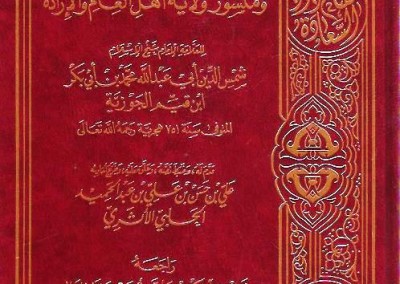 ومنشور ولاية أهل العلم والإرادة
للعلامة الإمام شيخ الإسلام
شمس الدين أبي عبد الله محمد بن أبي بكر
ابن قيم الجوزية
المتوفى سنة ٧٥١ هجرية رحمه الله تعالى
علي بن حسن بن علي بن عبد الحميد
الحلبي الأثري
راجعه
السعادة